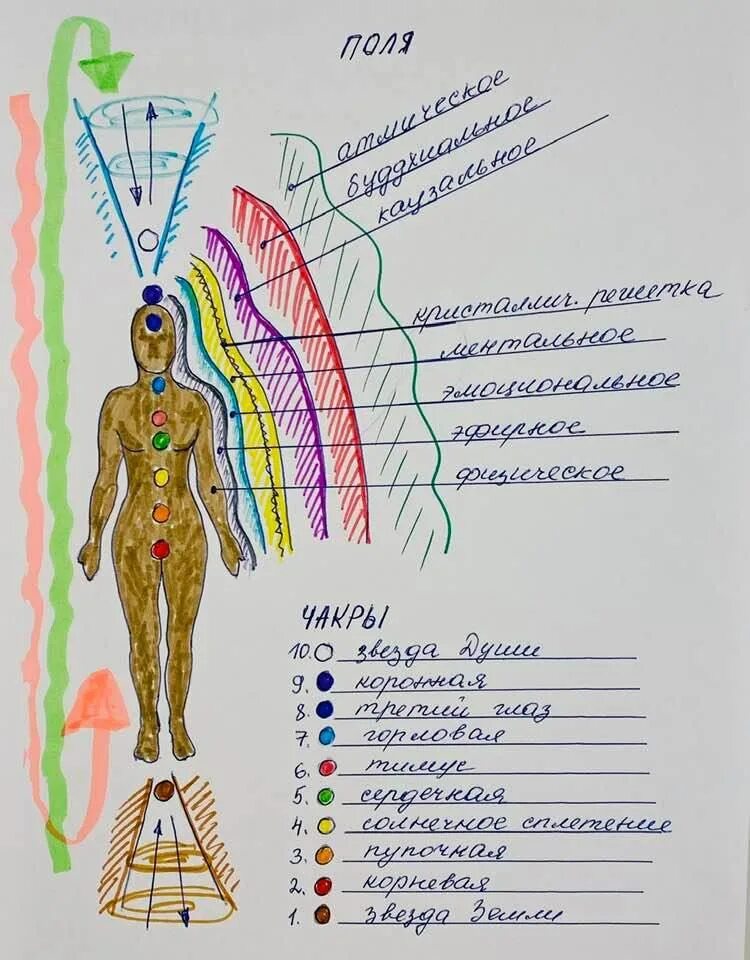 ПОЛЯ
атмическое
буддхиальное
каузальное
кристаллич. решетка
ментальное
эмоциональное
эфирное
физическое
ЧАКРЫ
10. звезда Души
9. коронная
8. третий глаз
7. горловая
6. тимус
5. сердечная
4. солнечное сплетение
3. пупочная
2. корневая
1. звезда Земли